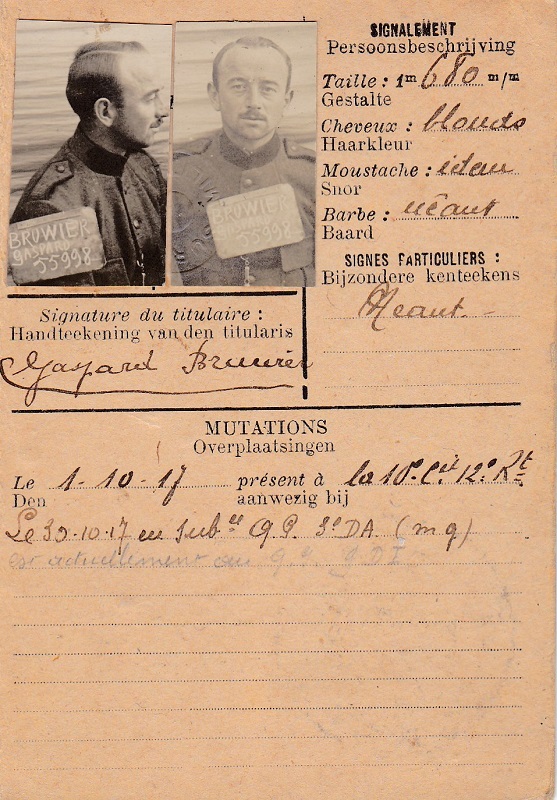 BROWIER
GASPARD
55998
BROWIER
55998
SIGNALEMENT
Persoonsbeschrijving
Taille : 1m 680 m/m
Gestalte
Cheveux : blonds
Haarkleur
Moustache : idem
Snor
Barbe : néant
Baard
SIGNES PARTICULIERS :
Bijzondere kenteekens
Néant -
Signature du titulaire :
Handteekening van den titularis
Gaspard
MUTATIONS
Overplaatsingen
Le 1-10-17 présent à la 10e Cie 12e Rt
Den aanwezig bij
Le 30-10-17 en subce Q.G. 3e DA (mg)
est actuellement au